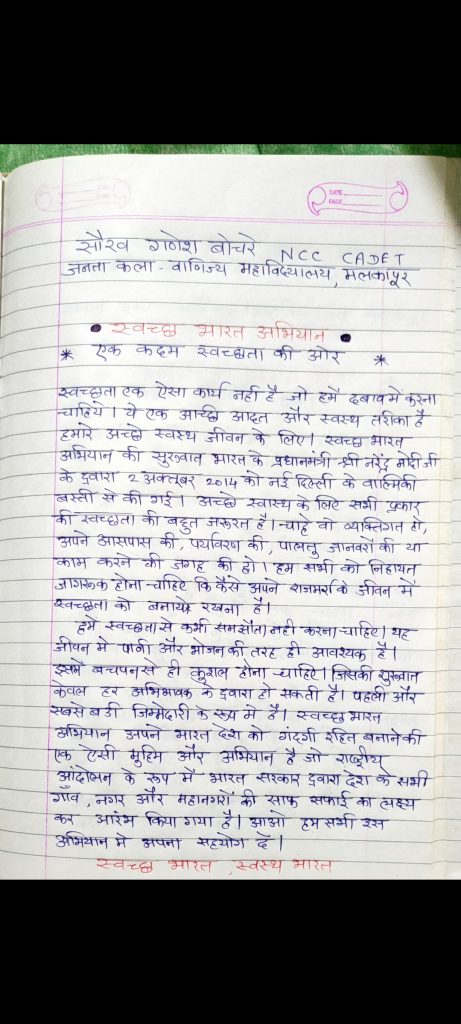 DATE
PAGE
सौरव गणेश बोचरे NCC CADET
जनता कला - वाणिज्य महाविद्यालय, मलकापूर
स्वच्छ भारत अभियान
* एक कदम स्वच्छता की ओर *
स्वच्छता एक ऐसा कार्य नही है जो हमें दबाव में करना
चाहिये। ये एक अच्छि आदत और स्वस्थ तरीका है
हमारे अच्छे स्वस्थ जीवन के लिए। स्वच्छ भारत
अभियान की सुरुवात भारत के प्रधानमंत्री श्री नरेंद्र मोदीजी
के द्वारा 2 अक्तूबर 2014 को नई दिल्ली के वाल्मिकी
बस्ती से की गई। अच्छे स्वास्थ के लिए सभी प्रकार
की स्वच्छता की बहुत जरुरत है। चाहे वो व्यक्तिगत हो,
अपने आसपास की, पर्यावरण की, पालतु जानवरों की या
काम करने की जगह की हो। हम सभी को निहायत
जागरूक होना चाहिए कि कैसे अपने राजमर्रा के जीवन में
स्वच्छता को बनाये रखना है।
हमे स्वच्छता से कभी समझौता नही करना चाहिए। यह
जीवन मे पाणी और भोजन की तरह ही आवश्यक है।
इसमें बचपन से ही कुशल होना चाहिए। जिसकी शुरुवात
केवल हर अभिभावक के द्वारा हो सकती है। पहली और
सबसे बडी जिम्मेदारी के रूप मे है। स्वच्छ भारत
अभियान अपने भारत देश को गंदगी रहित बनाने की
एक ऐसी मुहिम और अभियान है जो राष्ट्रीय
आंदोलन के रूप में भारत सरकार द्वारा देश के सभी
गाँव, नगर और महानगरों की साफ सफाई का लक्ष्य
कर आरंभ किया गया है। आओ हम सभी इस
अभियान मे अपना सहयोग दें।
स्वच्छ भारत, स्वस्थ भारत